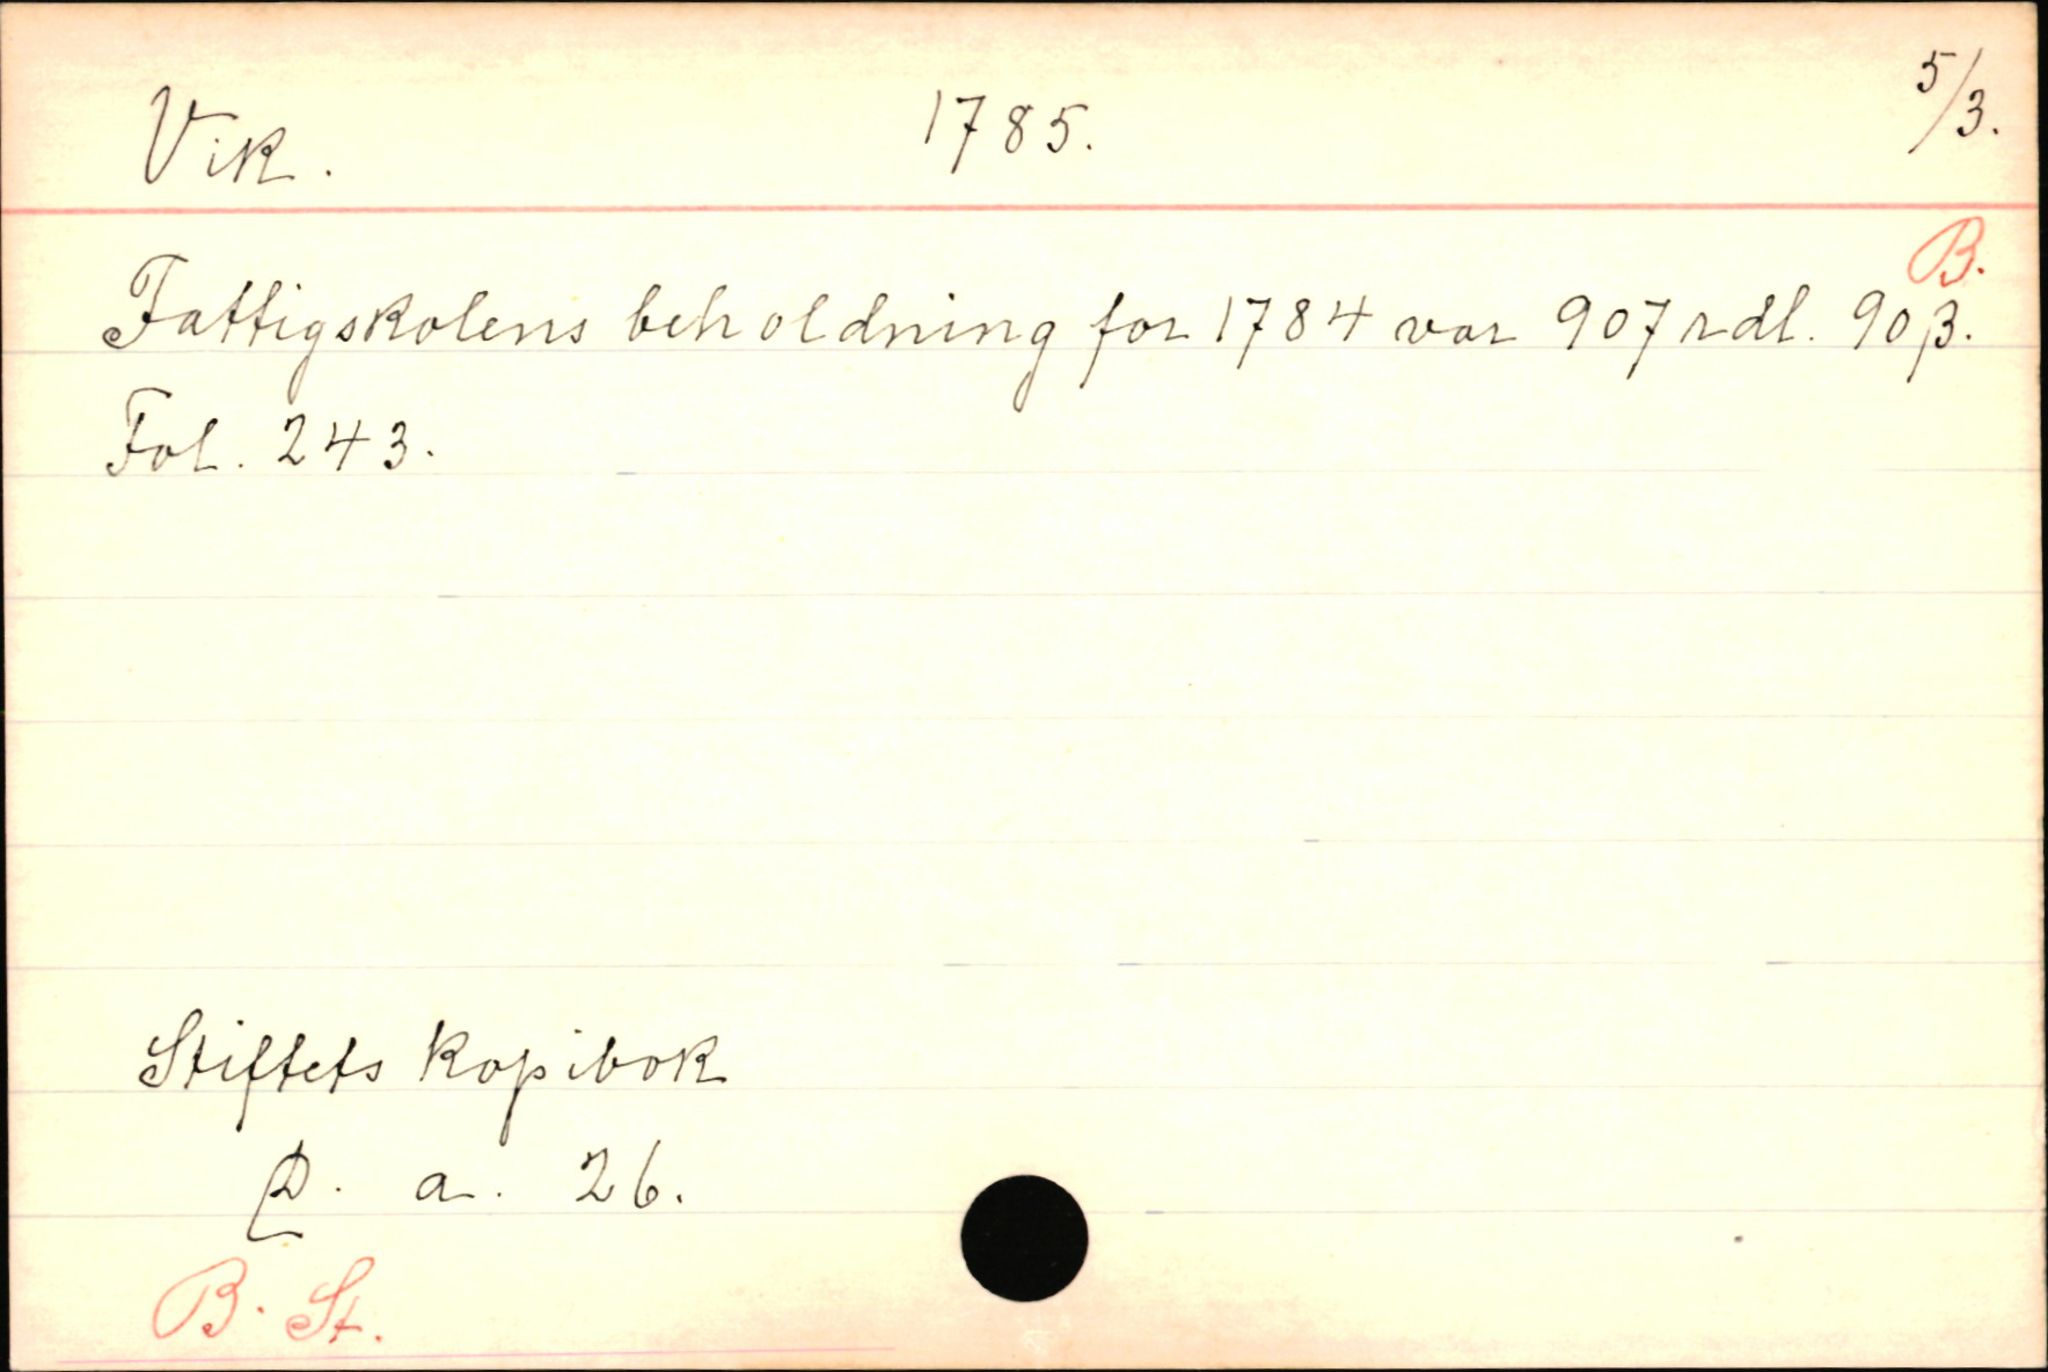 Vik. 1785. 5/3.
B.
Fattigskolens beholdning for 1784 var 907 rdl. 90 β.
Fol. 243.
Stiftets kopibok
a. 26.
B. St.